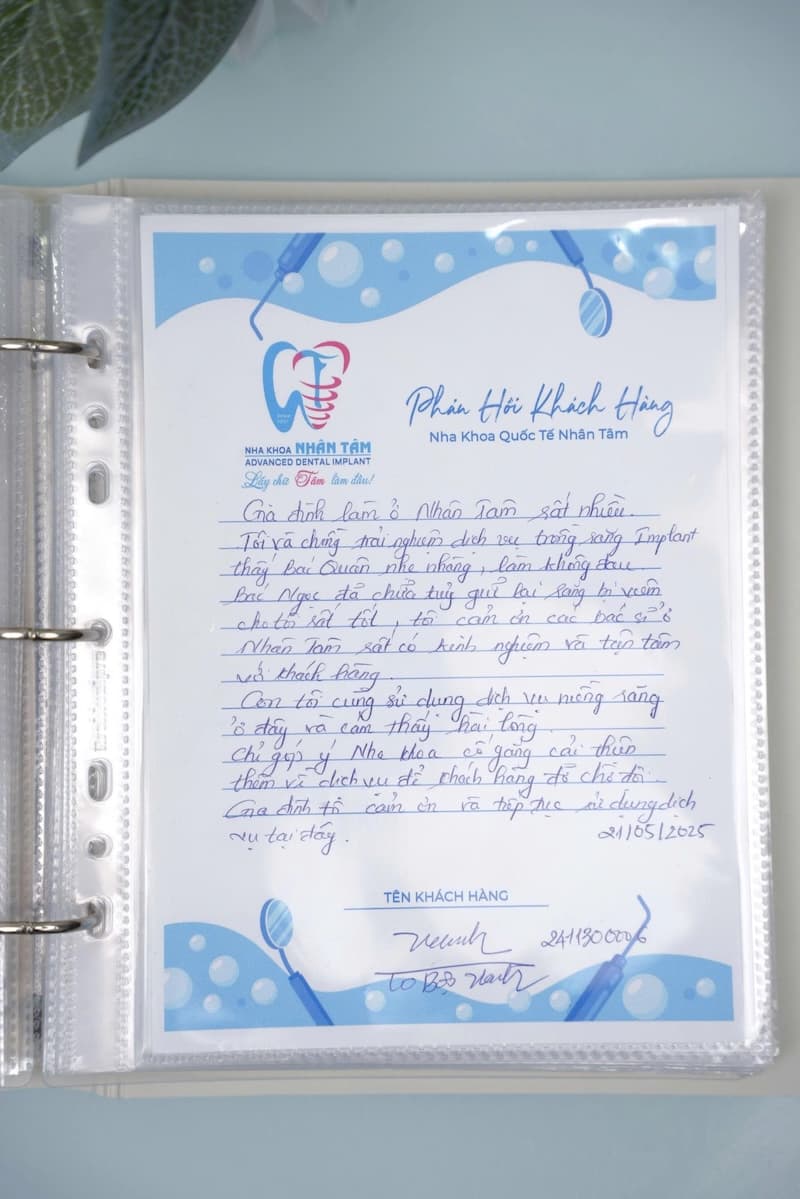 Phản Hồi Khách Hàng
Nha Khoa Quốc Tế Nhân Tâm
Since
NHA KHOA NHÂN TÂM
ADVANCED DENTAL IMPLANT
Lấy chữ Tâm làm đầu!
Gia đình làm ở Nhân Tâm rất nhiều.
Tôi và chồng trải nghiệm dịch vụ trồng răng Implant
thấy Bác Quân nhẹ nhàng, làm không đau.
Bác Ngọc đã chữa tuỷ giữ lại răng bị viêm
cho tôi rất tốt, tôi cảm ơn các bác sĩ ở
Nhân Tâm rất có kinh nghiệm và tận tâm
với khách hàng.
Con tôi cũng sử dụng dịch vụ niềng răng
ở đây và cảm thấy hài lòng.
Chỉ góp ý Nha khoa cố gắng cải thiện
thêm về dịch vụ để khách hàng đỡ chờ đợi.
Gia đình tôi cảm ơn và tiếp tục sử dụng dịch
vụ tại đây. 21/05/2025
TÊN KHÁCH HÀNG
2411300006